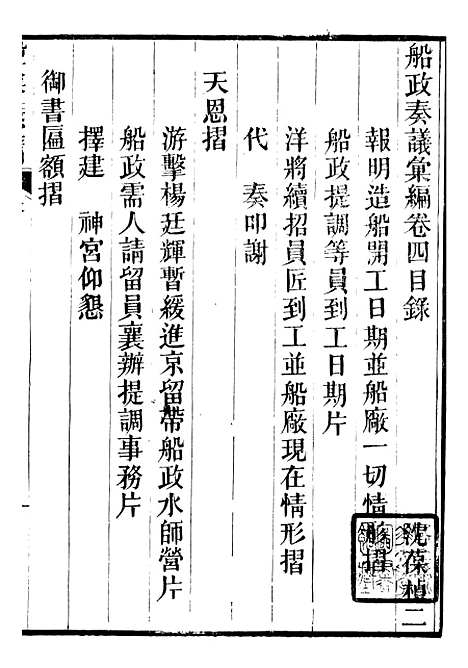 船政奏議彙編卷四目錄　沈葆楨二
報明造船開工日期並船廠一切情形摺
船政提調等員到工日期片
洋將續招員匠到工並船廠現在情形摺
代　奏叩謝
天恩摺
游擊楊廷輝暫緩進京留帶船政水師營片
船政需人請留員襄辦提調事務片
擇建　神宮仰懇
御書匾額摺